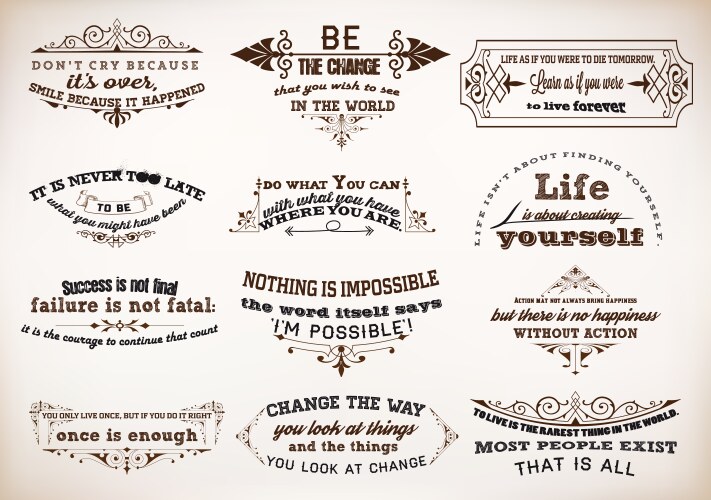 DON'T CRY BECAUSE
it's over,
SMILE BECAUSE IT HAPPENED
BE
THE CHANGE
that you wish to see
IN THE WORLD
LIFE AS IF YOU WERE TO DIE TOMORROW.
Learn as if you were
to live forever
IT IS NEVER TOO LATE
TO BE
what you might have been
DO WHAT YOU CAN
with what you have
WHERE YOU ARE.
LIFE ISN'T ABOUT FINDING YOURSELF.
Life
is about creating
yourself
Success is not final
failure is not fatal:
it is the courage to continue that count
NOTHING IS IMPOSSIBLE
the word itself says
'I'M POSSIBLE'!
ACTION MAY NOT ALWAYS BRING HAPPINESS
but there is no happiness
WITHOUT ACTION
YOU ONLY LIVE ONCE, BUT IF YOU DO IT RIGHT
once is enough
CHANGE THE WAY
you look at things
and the things
YOU LOOK AT CHANGE
TO LIVE IS THE RAREST THING IN THE WORLD.
MOST PEOPLE EXIST
THAT IS ALL